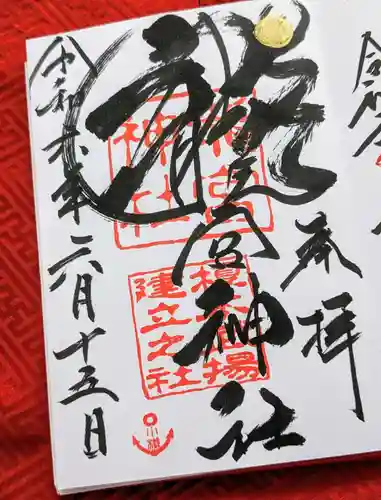 令和
奉拝
龍宮神社
龍宮
神社
榎本武揚
建立之社
令和六年六月十五日
小樽